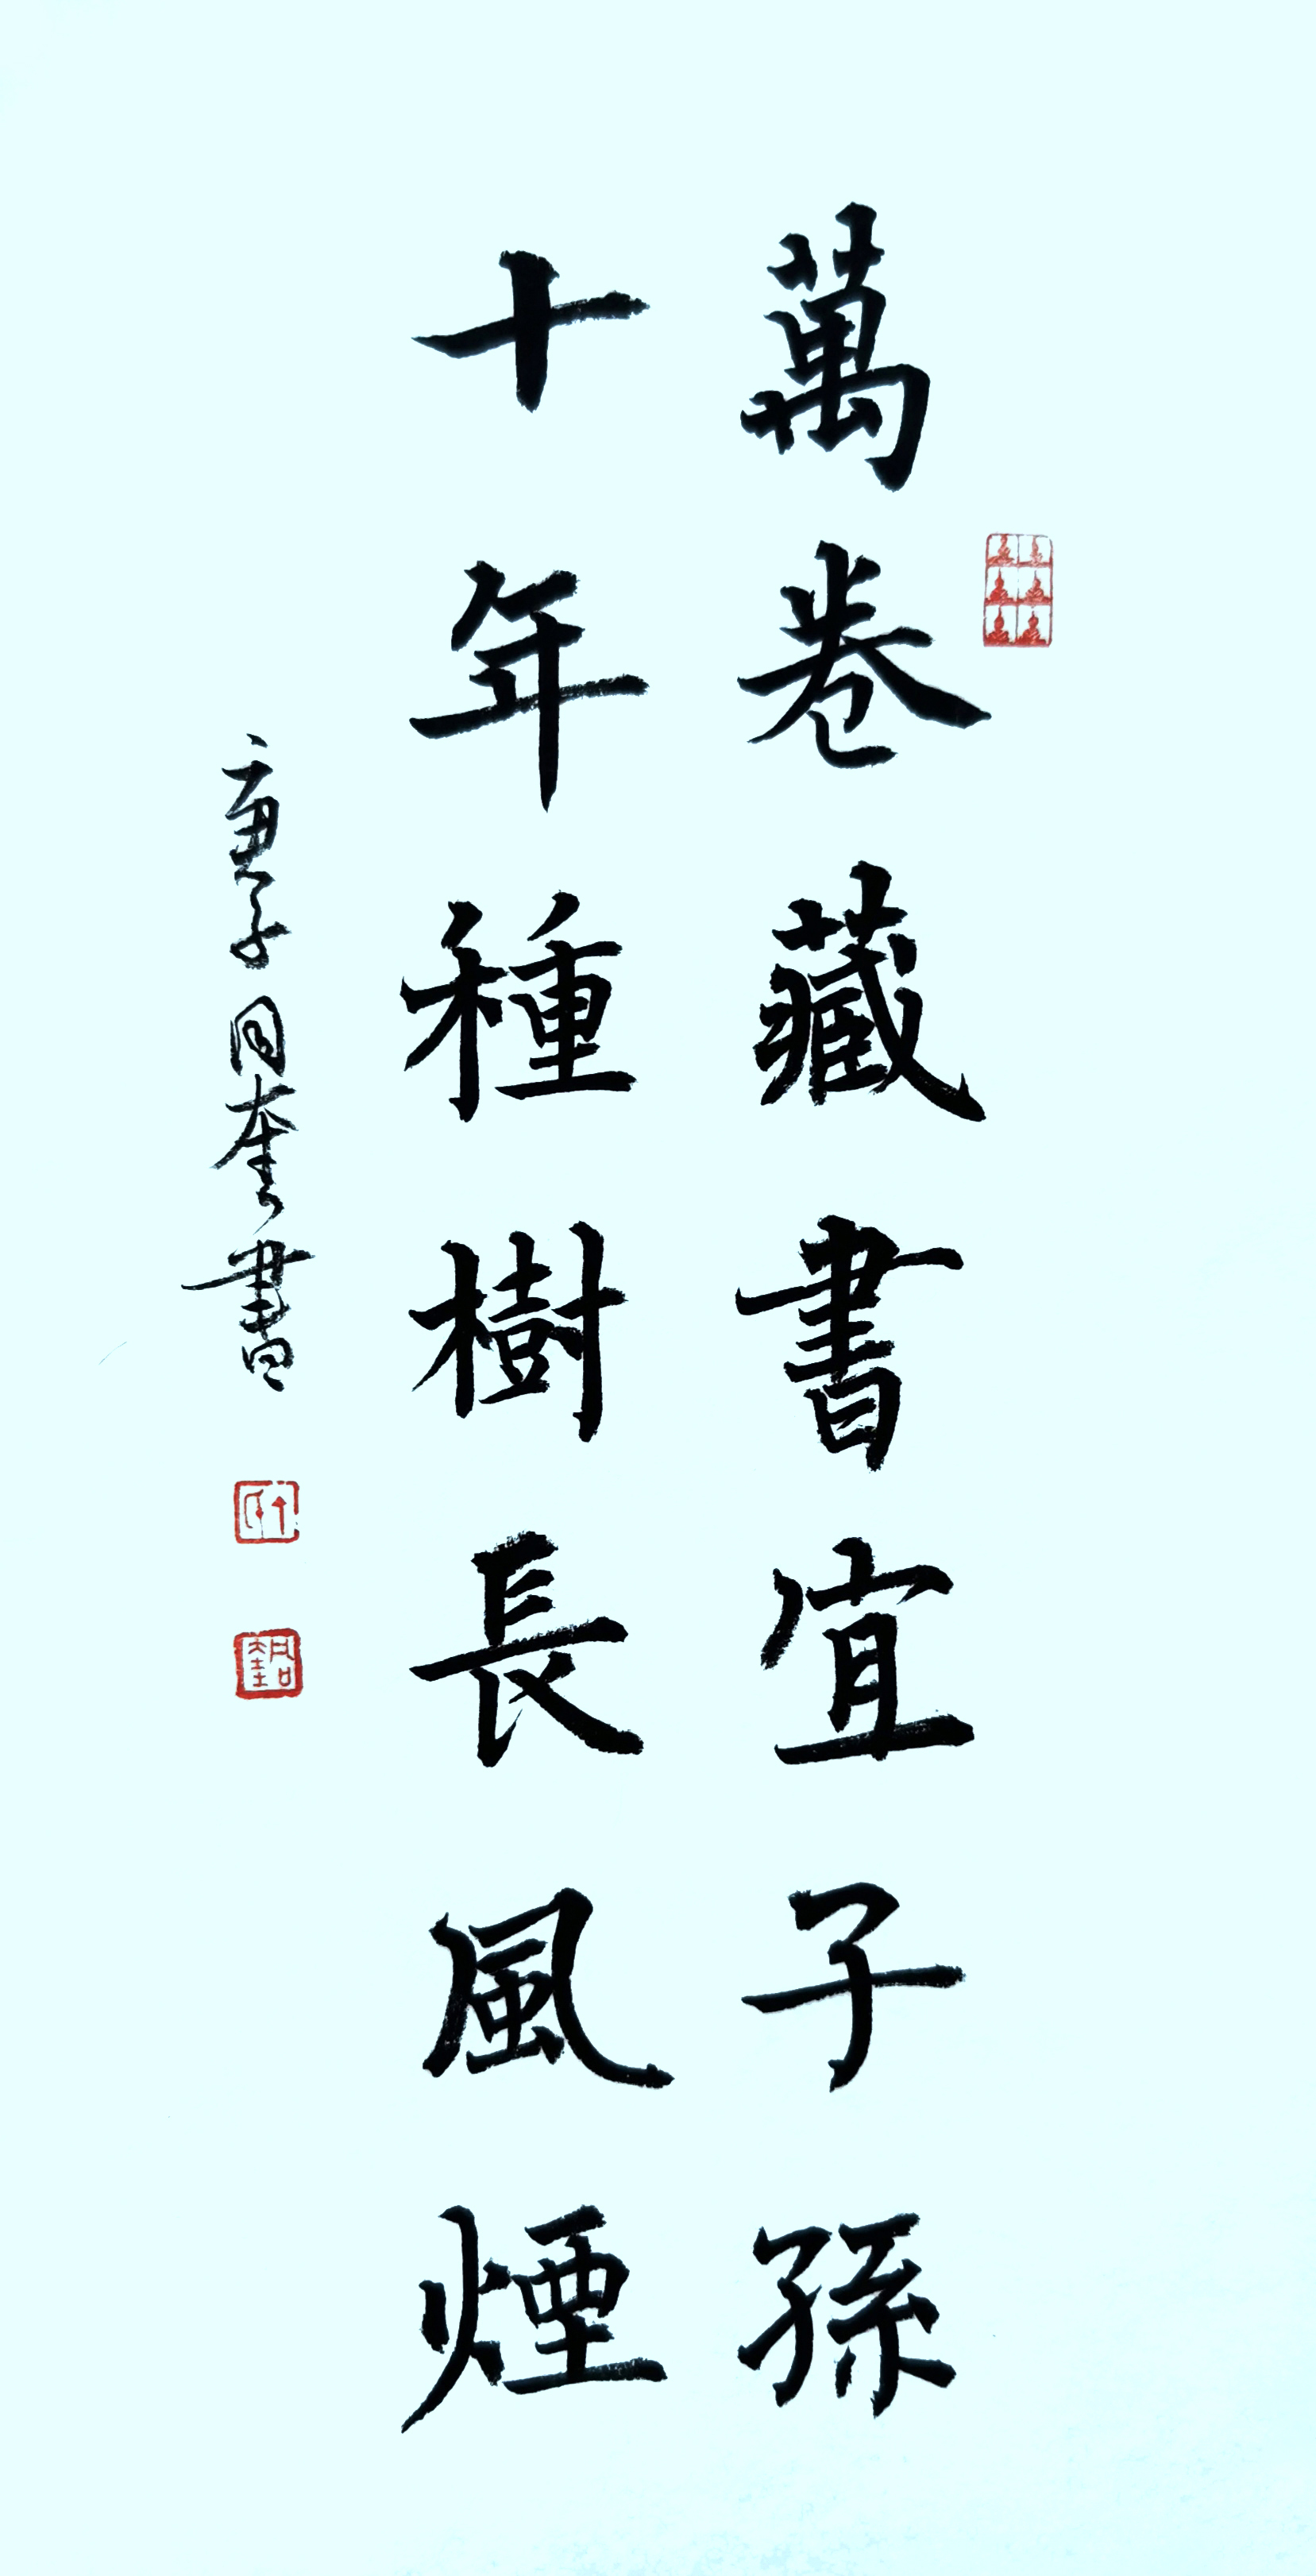 萬卷藏書宜子孫
十年種樹長風煙
庚子同奎書